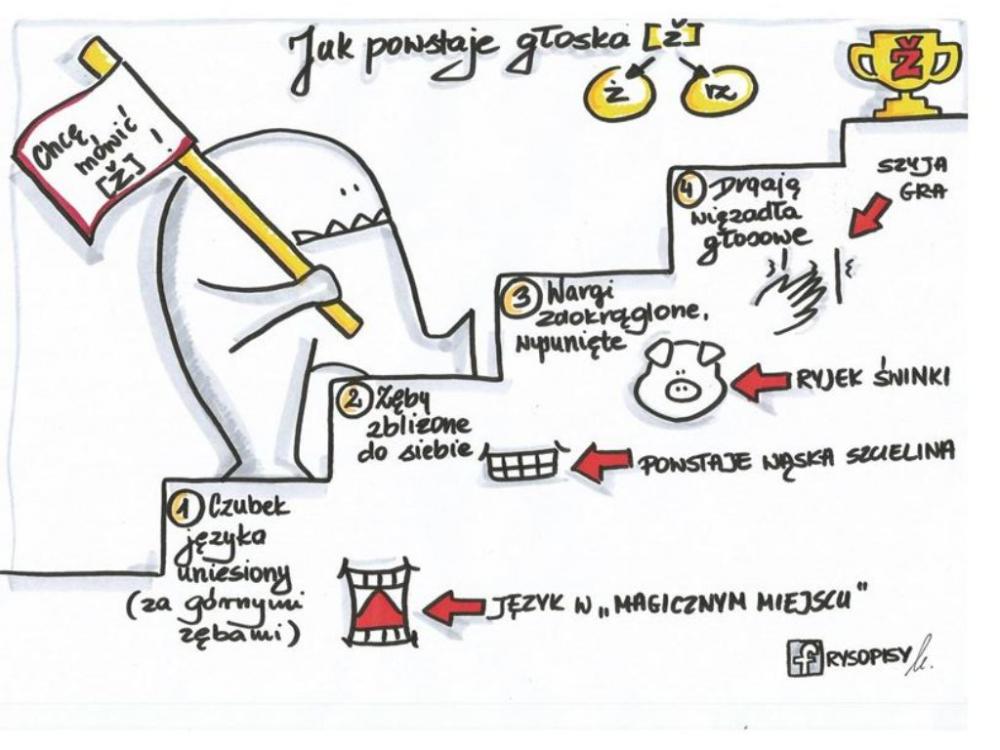 Jak powstaje głoska [ž]
ż rz
Ž
Chcę
mówić
[Ž] !
4 Drgają
więzadła
głosowe
SZYJA
GRA
3 Wargi
zaokrąglone,
wysunięte
RYJEK ŚWINKI
2 Zęby
zbliżone
do siebie
POWSTAJE WĄSKA SZCZELINA
1 Czubek
języka
uniesiony
(za górnymi
zębami)
JĘZYK W „MAGICZNYM MIEJSCU"
f RYSOPISY